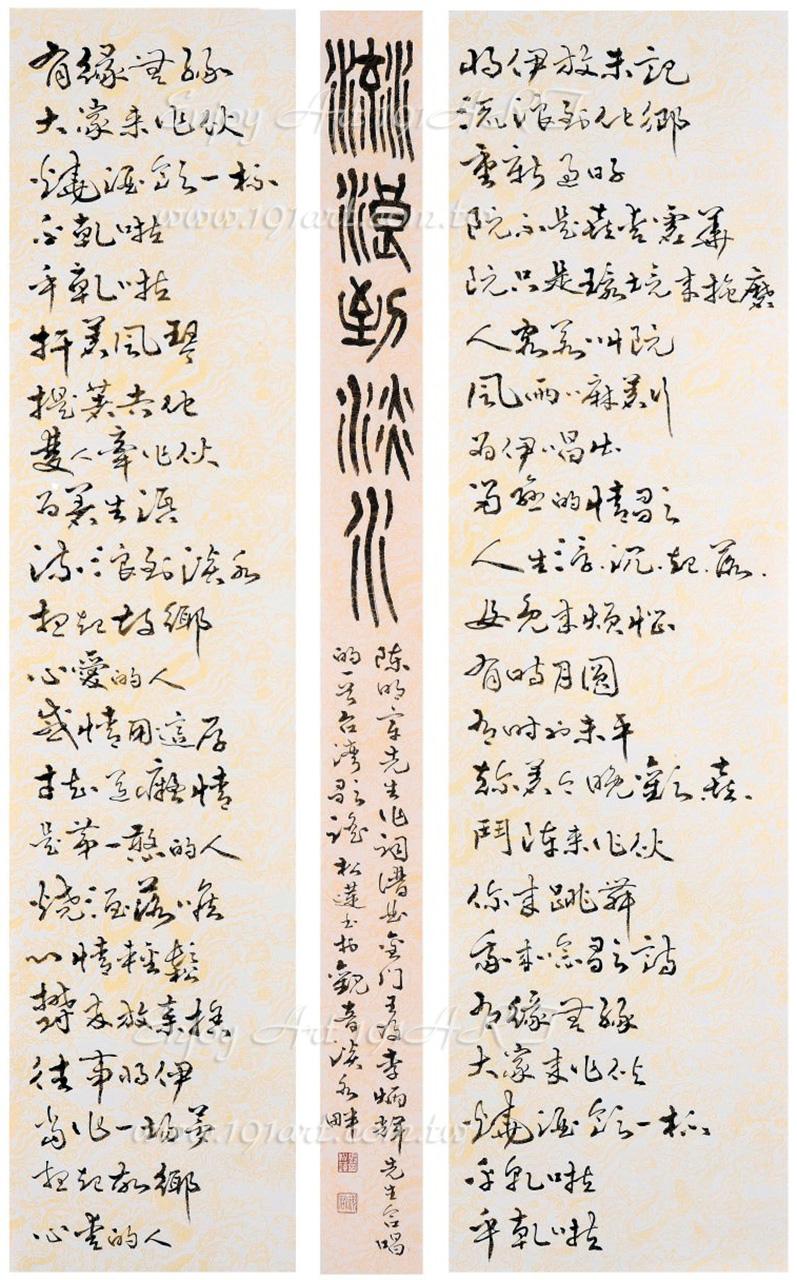 有緣無緣
大家來作伙
燒酒飲一杯
乎乾啦
乎乾啦
扞著風琴
提著吉他
雙人牽作伙
為著生活
流浪到淡水
想起故鄉
心愛的人
感情用這厚
才知道癡情
是第一憨的人
燒酒落喉
心情輕鬆
鬱卒放棄捨
往事將伊
當作一場夢
想起故鄉
心愛的人
流浪到淡水
陳明章先生作詞譜曲金門王及李炳輝先生合唱
的一首台灣歌謠松蓮書於觀音淡水畔
將伊放未記
流浪到他鄉
重新過日子
阮不是喜愛虛華
阮只是環境來拖磨
人客若叫阮
風雨嘛著行
為伊唱出
留戀的情歌
人生浮沉起落
毋免來煩惱
有時月圓
有時也未平
趁著今晚歡喜
鬥陣來作伙
你來跳舞
我來唸歌詩
有緣無緣
大家來作伙
燒酒飲一杯
乎乾啦
乎乾啦
Enjoy Art 191ART
www.191art.com.tw
Enjoy Art 191ART
www.191art.com.tw